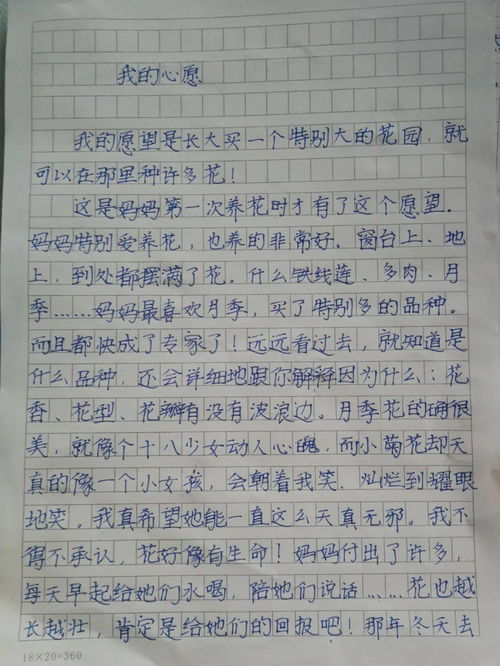 我的心愿
我的愿望是长大买一个特别大的花园，就
可以在那里种许多花！
这是妈妈第一次养花时才有了这个愿望．
妈妈特别爱养花，也养的非常好。窗台上、地
上，到处都摆满了花。什么铁线莲、多肉、月
季……妈妈最喜欢月季，买了特别多的品种。
而且都快成了专家了！远远看过去，就知道是
什么品种，还会详细地跟你解释因为什么：花
香、花型、花瓣有没有波浪边。月季花的确很
美，就像个十八少女动人心魄，而小菊花却天
真的像一个小女孩，会朝着我笑．灿烂到耀眼
地笑，我真希望她能一直这么天真无邪。我不
得不承认，花好像有生命！妈妈付出了许多，
每天早起给她们水喝，陪她们说话……花也越
长越壮，肯定是给她们的回报吧！那年冬天去
18×20=360